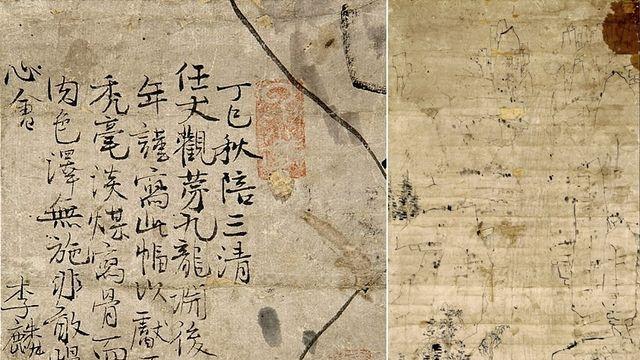 丁巳秋陪三清
任丈觀苐九龍渊後
年謹寫此幅以獻
禿毫淡煤寫骨而
肉色澤無施非敢
心會 李麟